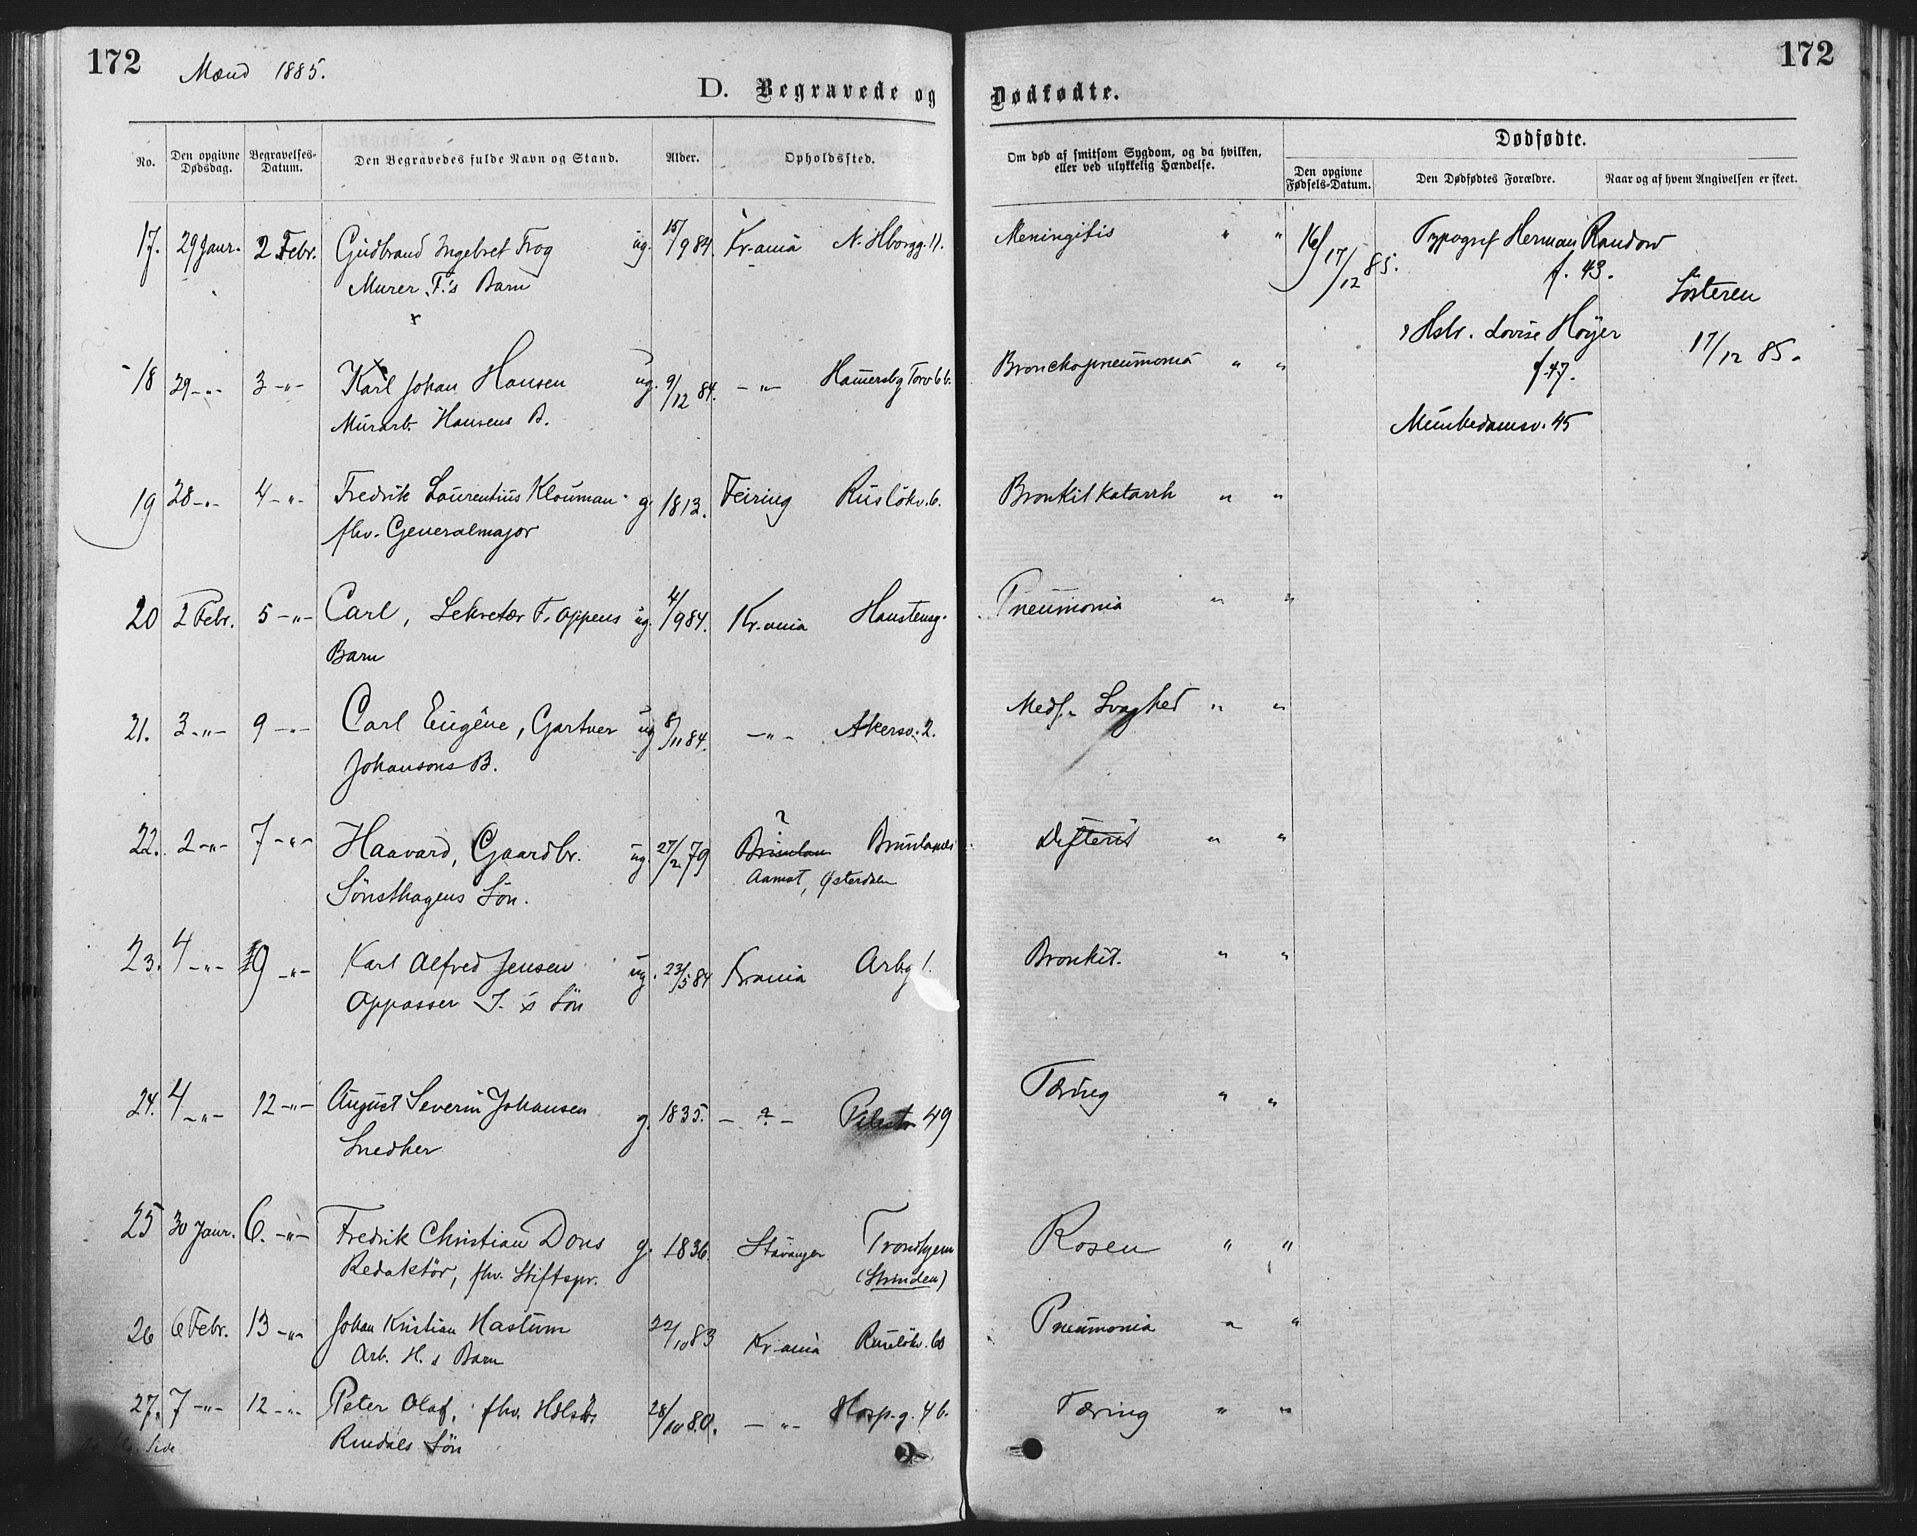 172
Mænd 1885.
172
D. Begravede og Dødfødte.
No.
Den opgivne Dødsdag.
Begravelses-Datum.
Den Begravedes fulde Navn og Stand.
Alder.
Opholdssted.
Om død af smitsom Sygdom, og da hvilken,
eller ved ulykkelig Hændelse.
Dødfødte.
Den opgivne Fødsels-Datum.
Den Dødfødtes Forældre.
Naar og af hvem Angivelsen er skeet.
17. 29 Janr. 2 Febr. Gudbrand Ingebret Frog ug. 15/9 84. Kr.ania N. Hborgg. 11. Meningitis " "
Murer F.'s Barn
18 29 -"- 3 -"- Karl Johan Hansen ug. 9/12 84. -"- Hamersbg Torv 6 b. Bronchopneumonia " "
Murarb. Hansens B.
19 28 -"- 4 -"- Fredrik Laurentius Klouman g. 1813. Feiring Ruslökv. 6. Bronkit Katarrh " "
fhv. Generalmajor
20 2 Febr. 5 -"- Carl, Sekretær F. Oppens ug. 4/9 84. Kr.ania Hausteng. Pneumonia " "
Barn
21. 3 -"- 9 -"- Carl Eugêne, Gartner ug 8/11 84. -"- Akersv. 2. Medf. Svaghed " "
Johansons B.
22. 2 -"- 7 -"- Haavard, Gaardbr. ug. 27/2 79 ? Brunlanes Difterit " "
Sönsthagens Sön. Aamot, Østerdalen
23. 4 -"- 9 -"- Karl Alfred Jensen ug. 23/5 84 Krania Arbg 1. Bronkit. " "
Oppasser J.'s Sön
24. 4 -"- 12 -"- August Severin Johansen g. 1835. - ? - Pilestr 49 Tæring " "
Snedker
25 30 Janr. 6. -"- Fredrik Christian Dons g. 1836. Stavanger Trondhjem Rosen " "
Redaktör, fhv. Stiftspr. (Strinden)
26 6 Febr. 13 -"- Johan Kristian Hastum 22/10 83 Kr.ania Ruselökv. 60 Pneumonia " "
Arb. H.s Barn
27. 7 -"- 12 -"- Peter Olaf, fhv. Hdlsb. 28/10 80. -"- Hosp.g. 4 b. Tæring " "
Rudals Sön
Side
16/17/12 85. Typogrf Herman Randow
f. 43.
Sösteren
Hstr. Lovise Høyer
17/12 85.
f. 47.
Munkedamsv. 45